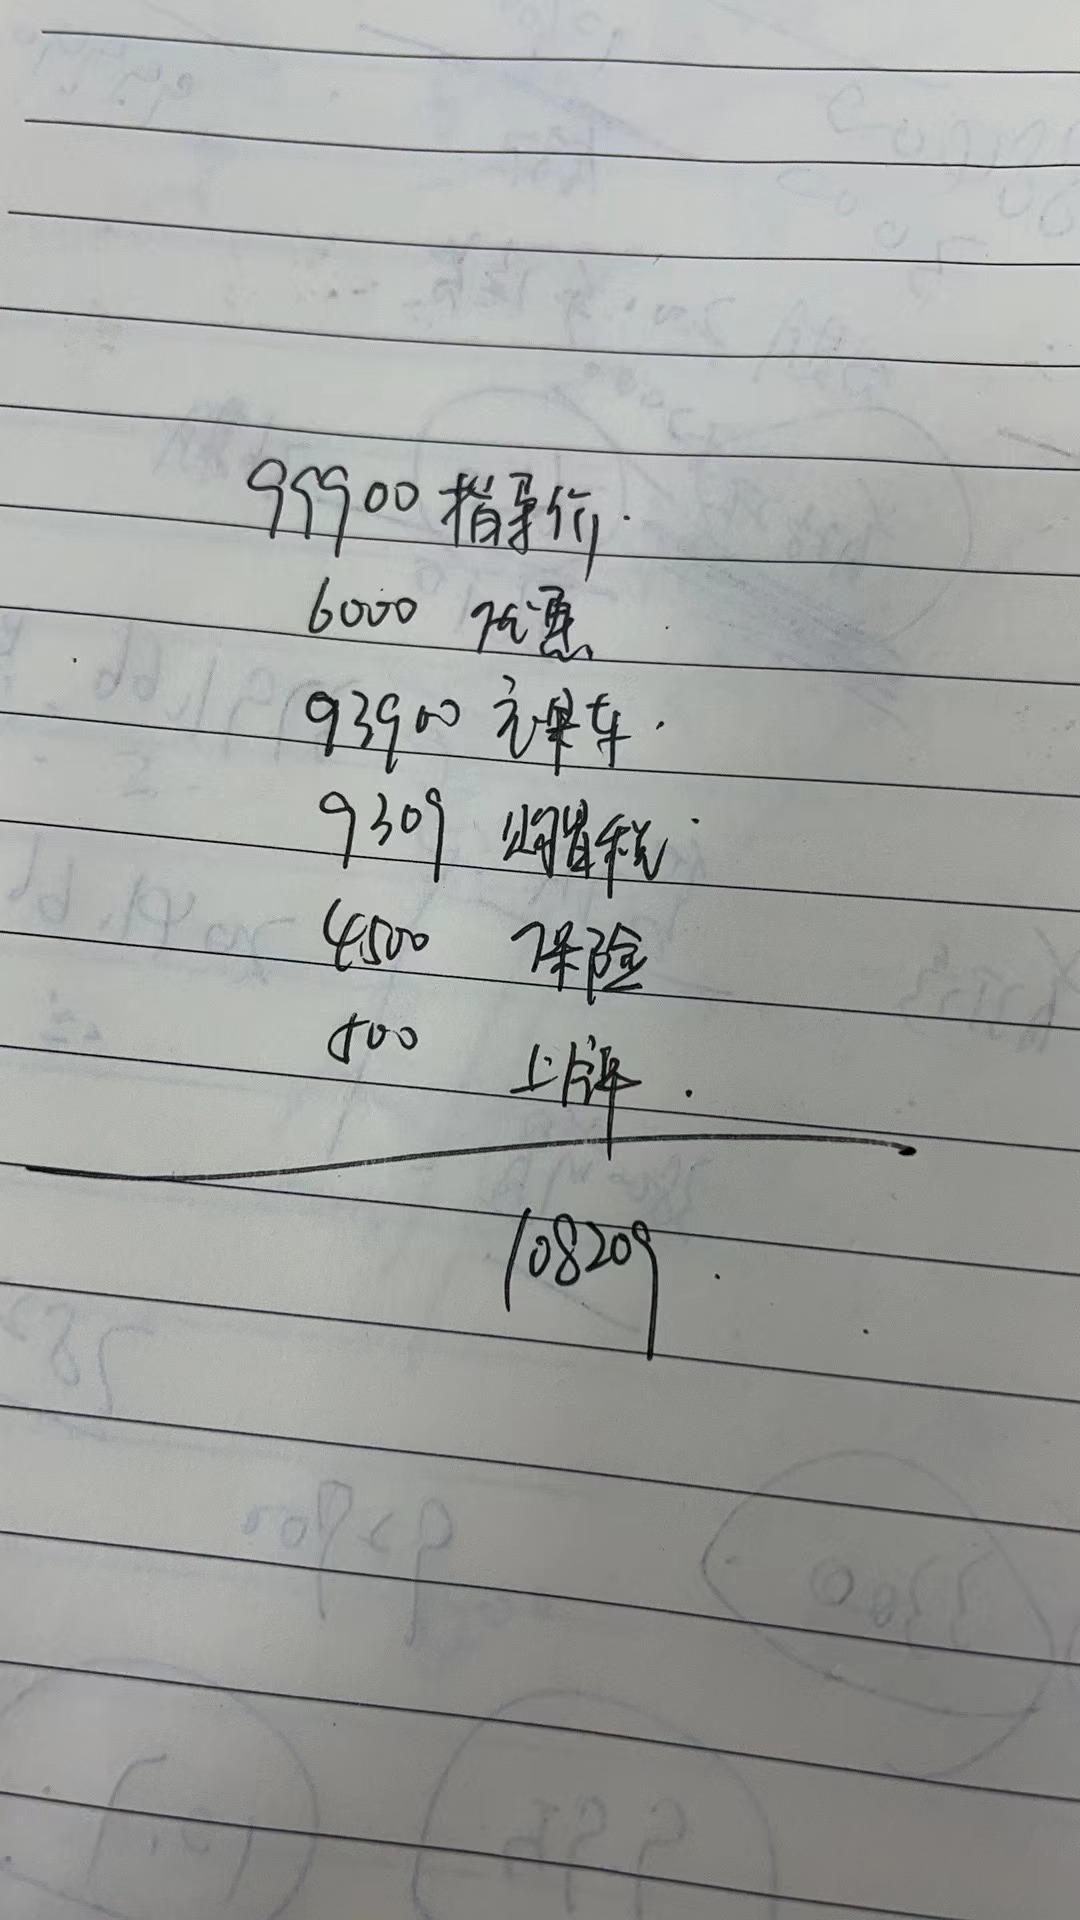 99900 指导价.
6000 优惠
93900 元裸车.
9309 购置税
4500 保险
500 上牌.
108209